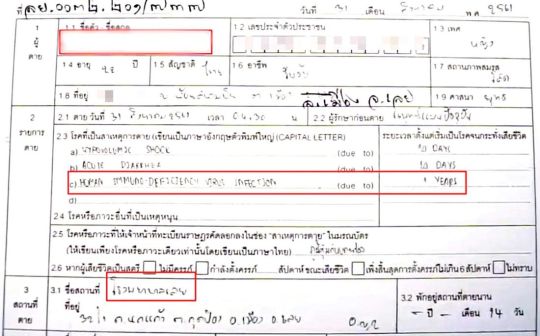 ที่ ลย.๐๐๓๒.๒๐๑/๗๓๓ วันที่ 31 เดือน สิงหาคม พ.ศ. 2561
1 1.1 ชื่อตัว ชื่อสกุล 1.2 เลขประจำตัวประชาชน 1.3 เพศ
ผู้ หญิง
ตาย 1.4 อายุ ปี 1.5 สัญชาติ ไทย 1.6 อาชีพ รับจ้าง 1.7 สถานภาพสมรส
โสด
1.8 ที่อยู่ อ.เมือง จ.เลย 1.9 ศาสนา พุทธ
2 2.1 ตาย วันที่ 31 สิงหาคม 2561 เวลา น. 2.2 ผู้รักษาก่อนตาย
รายการ 2.3 โรคที่เป็นสาเหตุการตาย (เขียนเป็นภาษาอังกฤษตัวพิมพ์ใหญ่ (CAPITAL LETTER) ระยะเวลาตั้งแต่เริ่มเป็นโรคจนกระทั่งเสียชีวิต
ตาย a) HYPOVOLEMIC SHOCK (due to) DAY
b) ACUTE DIARRHEA (due to) 10 DAYS
c) HUMAN IMMUNO-DEFICIENCY VIRUS INFECTION (due to) YEARS
2.4 โรคหรือภาวะอื่นที่เป็นเหตุหนุน
2.5 โรคหรือภาวะที่ให้เจ้าหน้าที่ทะเบียนราษฎรคัดลอกลงในช่อง "สาเหตุการตาย" ในมรณบัตร
(ให้เขียนเพียงโรคหรือภาวะเดียวเท่านั้นโดยเขียนเป็นภาษาไทย) ภูมิคุ้มกันบกพร่อง
2.6 หากผู้เสียชีวิตเป็นสตรี ไม่มีครรภ์ กำลังตั้งครรภ์ สัปดาห์ ขณะเสียชีวิต เพิ่งสิ้นสุดการตั้งครรภ์ไม่เกิน 6 สัปดาห์ ไม่ทราบ
3 3.1 ชื่อสถานที่ โรงพยาบาลเลย 3.2 พักอยู่สถานที่ตายนาน
สถานที่ - ปี - เดือน 14 วัน
ตาย 32/1 ถ.มลิวรรณ ต.กุดป่อง อ.เมือง จ.เลย